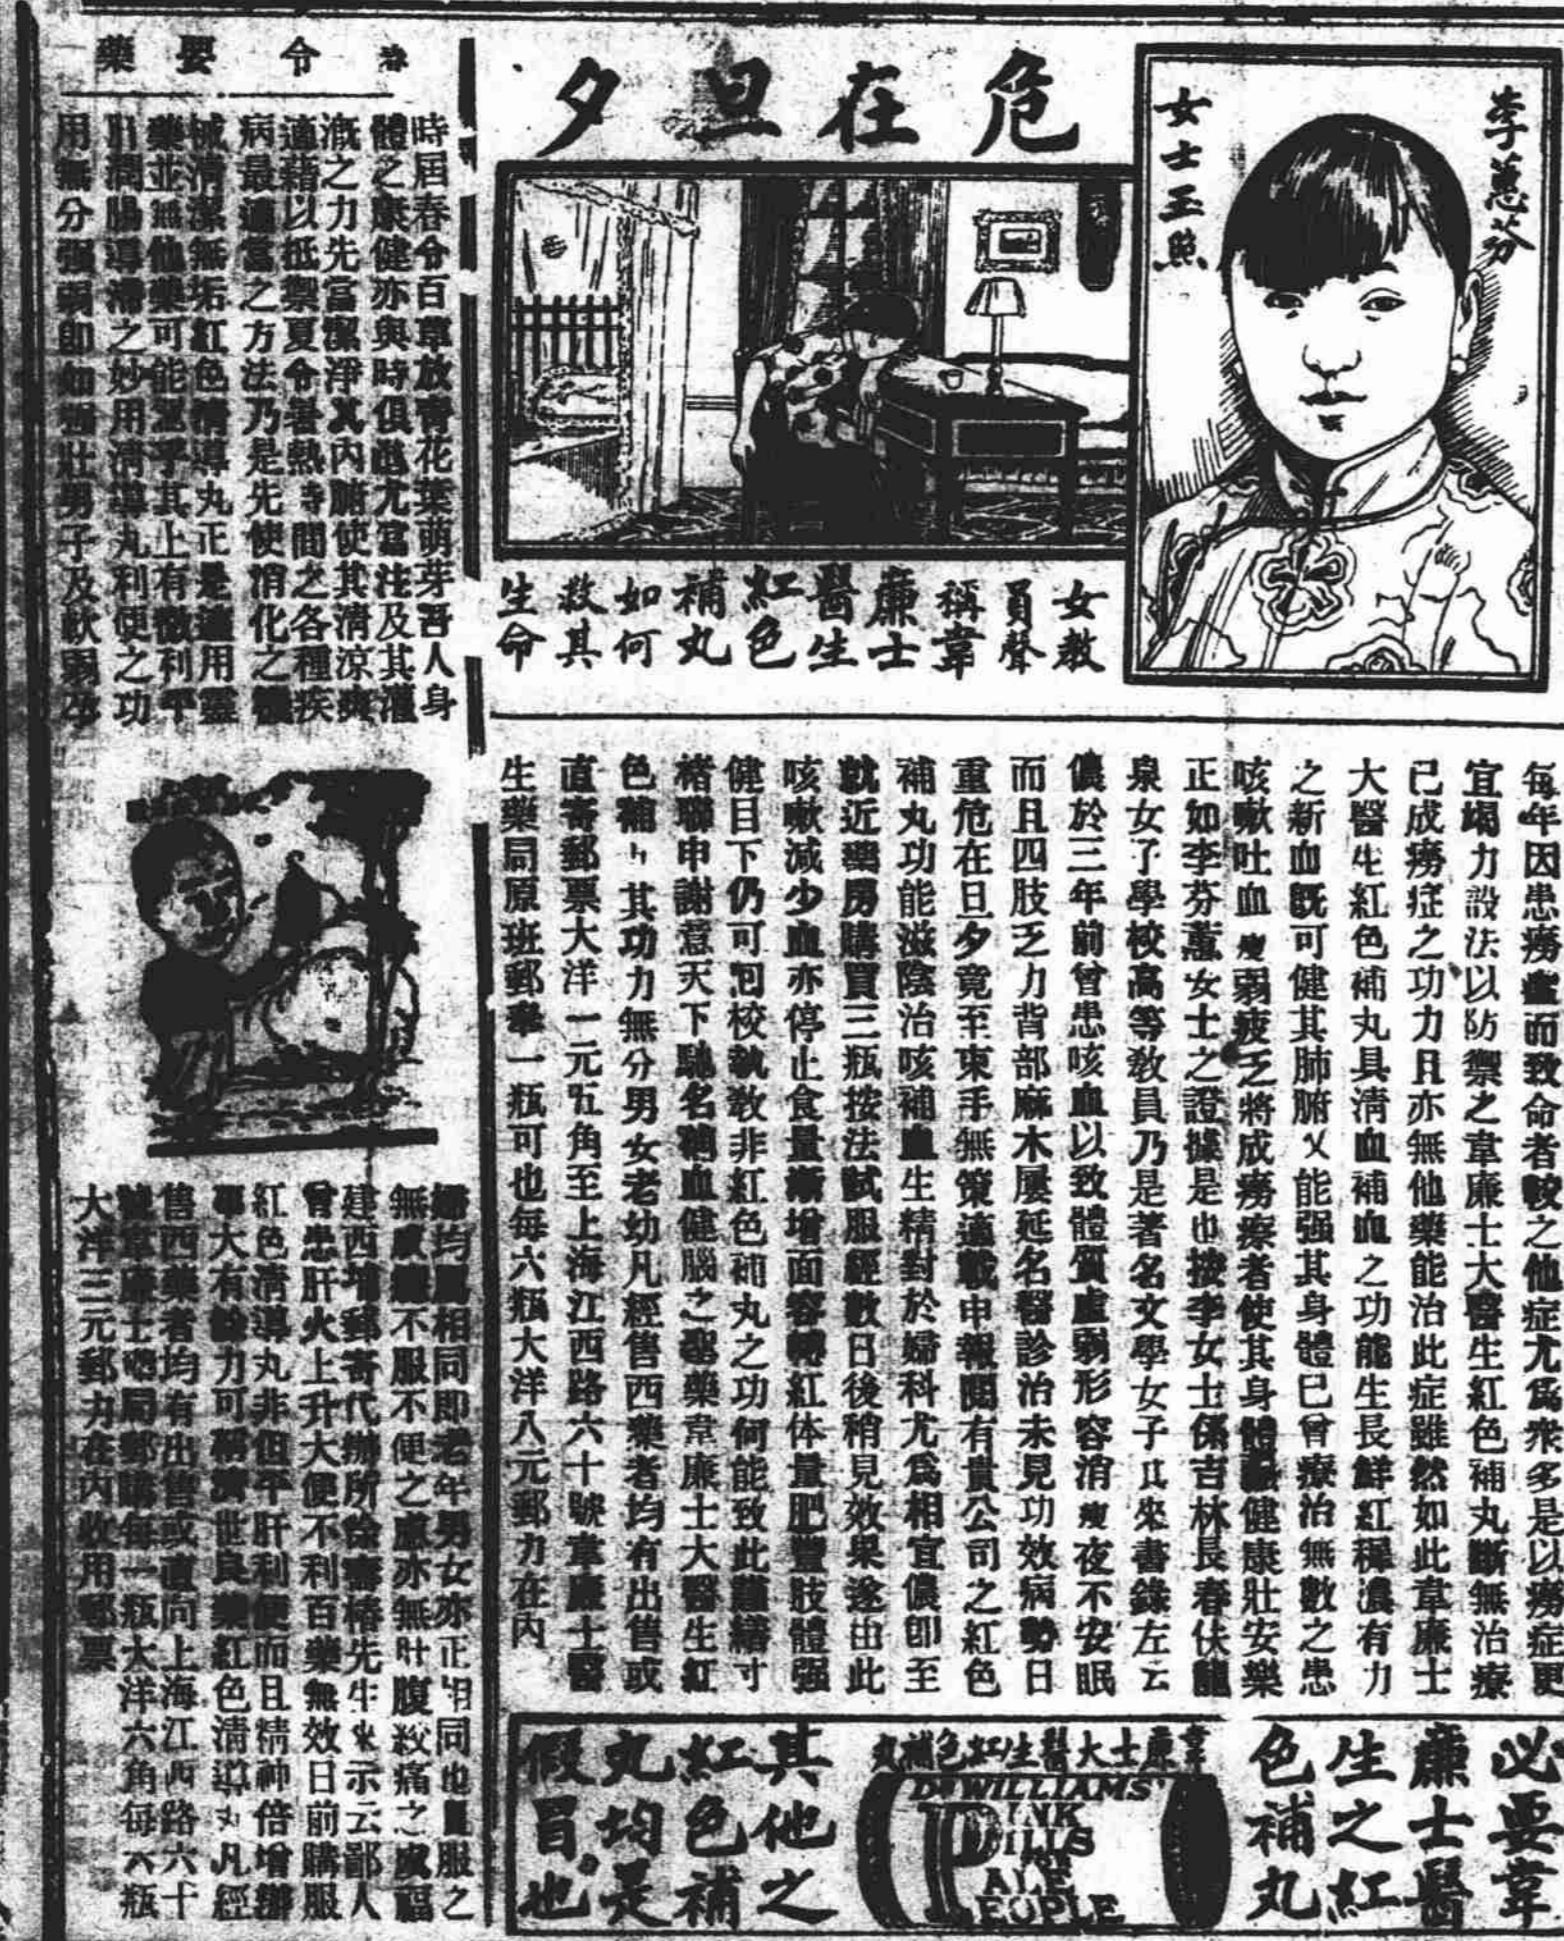 危在旦夕
李蕙芬
女士玉照
女教
員聲
稱韋
廉士
醫生
紅色
補丸
如何
救其
生命
每年因患癆症而致命者較之他症尤為衆多是以癆症更
宜竭力設法以防禦之韋廉士大醫生紅色補丸斷無治療
已成癆症之功力且亦無他藥能治此症雖然如此韋廉士
大醫生紅色補丸具清血補血之功能生長鮮紅穠濃有力
之新血既可健其肺腑又能强其身體已曾療治無數之患
咳嗽吐血瘦弱疲乏將成癆瘵者使其身體健康壯安樂
正如李芬蕙女士之證據是也按李女士係吉林長春伏龍
泉女子學校高等教員乃是著名文學女子其來書錄左云
儂於三年前曾患咳血以致體質虛弱形容消瘦夜不安眠
而且四肢乏力背部麻木屢延名醫診治未見功效病勢日
重危在旦夕竟至束手無策適載申報閱有貴公司之紅色
補丸功能滋陰治咳補血生精對於婦科尤爲相宜儂卽至
就近藥房購買三瓶按法試服經數日後稍見效果遂由此
咳嗽減少血亦停止食量漸增面容轉紅体量肥豐肢體强
健目下仍可回校執教非紅色補丸之功何能致此謹繕寸
楮聯申謝意天下馳名補血健腦之聖藥韋廉士大醫生紅
色補丸其功力無分男女老幼凡經售西藥者均有出售或
直寄郵票大洋一元五角至上海江西路六十號韋廉士醫
生藥局原班郵奉一瓶可也每六瓶大洋八元郵力在內
必要韋
廉士醫
生之紅
色補丸
韋廉士大醫生紅色補丸
DR WILLIAMS'
PINK
PILLS
FOR
PALE
PEOPLE
其他之
紅色補
丸均是
假冒也
春令要藥
時屆春令百草放青花葉萌芽吾人身
體之康健亦與時俱進尤當注及其灌
溉之力先當潔淨其內腑使其清涼爽
適藉以抵禦夏令暑熱時間之各種疾
病最適當之方法乃是先使消化之機
械清潔無垢紅色清導丸正是適用靈
藥並無他藥可能駕乎其上有微利平
肝潤腸導滯之妙用清導丸利便之功
用無分强弱卽如强壯男子及軟弱坐
婦均屬相同即老年男女亦正相同也且服之
無不服不便之慮亦無肚腹絞痛之福
建西埔郵寄代辦所徐椿先生來示云鄙人
曾患肝火上升大便不利百藥無效日前購服
紅色清導丸非但平肝利便而且精神倍增辦
事大有餘力可稱濟世良藥紅色清導丸凡經
售西藥者均有出售或直向上海江西路六十
號韋廉士藥局郵購每一瓶大洋六角每六瓶
大洋三元郵力在內收用郵票